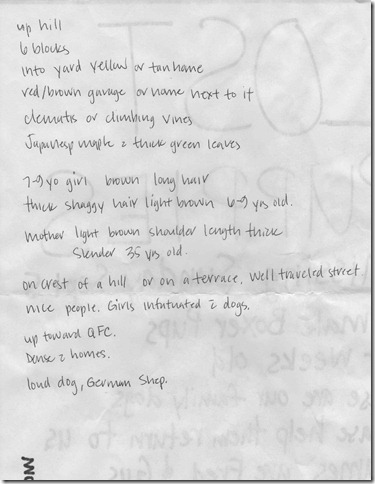 up hill
6 blocks
into yard yellow or tan home
red/brown garage or home next to it
clematis or climbing vines
Japanese maple c̄ thick green leaves
7-9 yo girl brown long hair
thick shaggy hair light brown 6-9 yrs old.
mother light brown shoulder length thick
slender 35 yrs old.
on crest of a hill or on a terrace. Well traveled street
nice people. Girls infatuated c̄ dogs.
up toward QFC.
Dense c̄ homes.
loud dog, German Shep.
OST
PUPPIES
male Boxer Pups
weeks old,
se are our family dogs
ase help them return to us